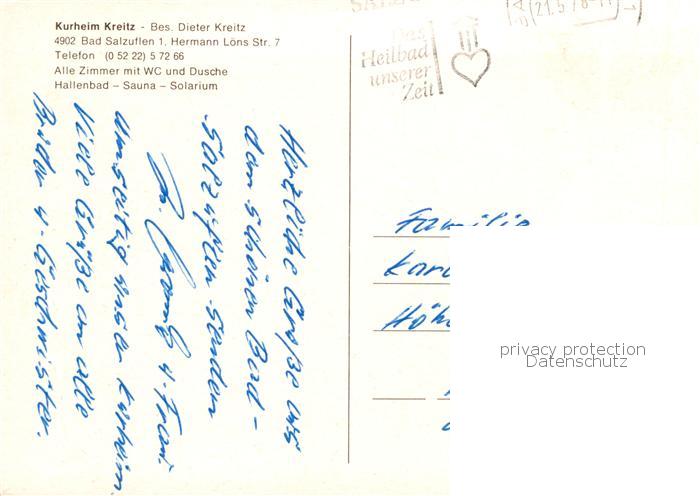 Kurheim Kreitz - Bes. Dieter Kreitz
4902 Bad Salzuflen 1, Hermann Löns Str. 7
Telefon (0 52 22) 5 72 66
Alle Zimmer mit WC und Dusche
Hallenbad – Sauna – Solarium
Das
Heilbad
unserer
Zeit
21.5.78-11
Herzliche Grüße aus
dem schönen Bad-
Salzuflen senden
u. Frau.
Umseitig unser Kurheim
Viele Grüße an alle
Brüder u. Geschwister.
Familie
privacy protection
Datenschutz